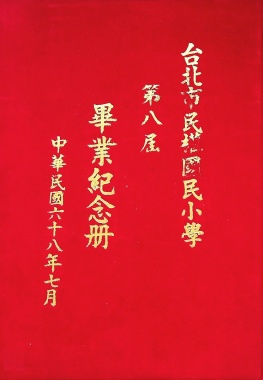 台北市民國民小學
第八屆
畢業紀念册
中華民國六十八年七月